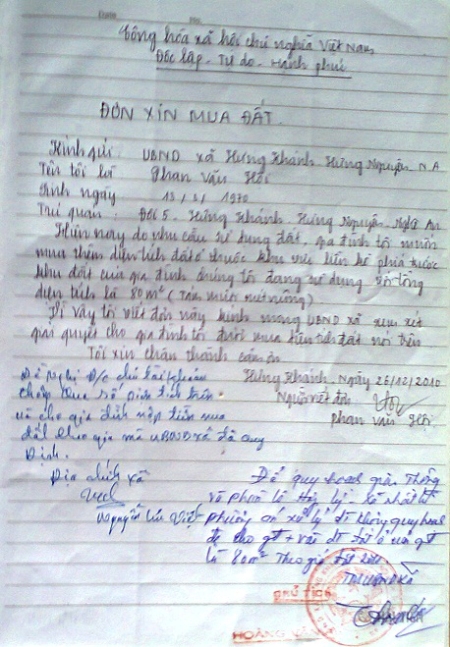 Cộng hóa xã hội chủ nghĩa Việt Nam
Độc lập - Tự do - Hạnh phúc
ĐƠN XIN MUA ĐẤT.
Kính gửi: UBND xã Hưng Khánh Hưng Nguyên N.A
Tên tôi là Phan Văn Hội
Sinh ngày 1970
Trú quán: Đội 5. Hưng Khánh. Hưng Nguyên. Nghệ An
Hiện nay do nhu cầu sử dụng đất, gia đình tôi muốn
mua thêm diện tích đất thuộc khu vực liền kề phía trước
khu đất của gia đình chúng tôi đang sử dụng với tổng
diện tích là 80m² (Tám mươi mét vuông)
Vì vậy tôi viết đơn này kính mong UBND xã xem xét
giải quyết cho gia đình tôi được mua diện tích đất nói trên
Tôi xin chân thành cảm ơn
Hưng Khánh, Ngày 26/02/2010
Người viết đơn
Phan Văn Hội.
Đề nghị Đ/c chủ tài khoản
diện tích trên
và cho gia đình nộp tiền mua
đất theo giá mà UBND xã đã quy
Định.
Địa chính xã
Nguyễn Việt
Để quy hoạch giao thông
và phân lô hợp lý
phương án xử lý không quy hoạch
là 80m² Theo giá đất
TM UBND xã
CHỦ TỊCH
HOÀNG